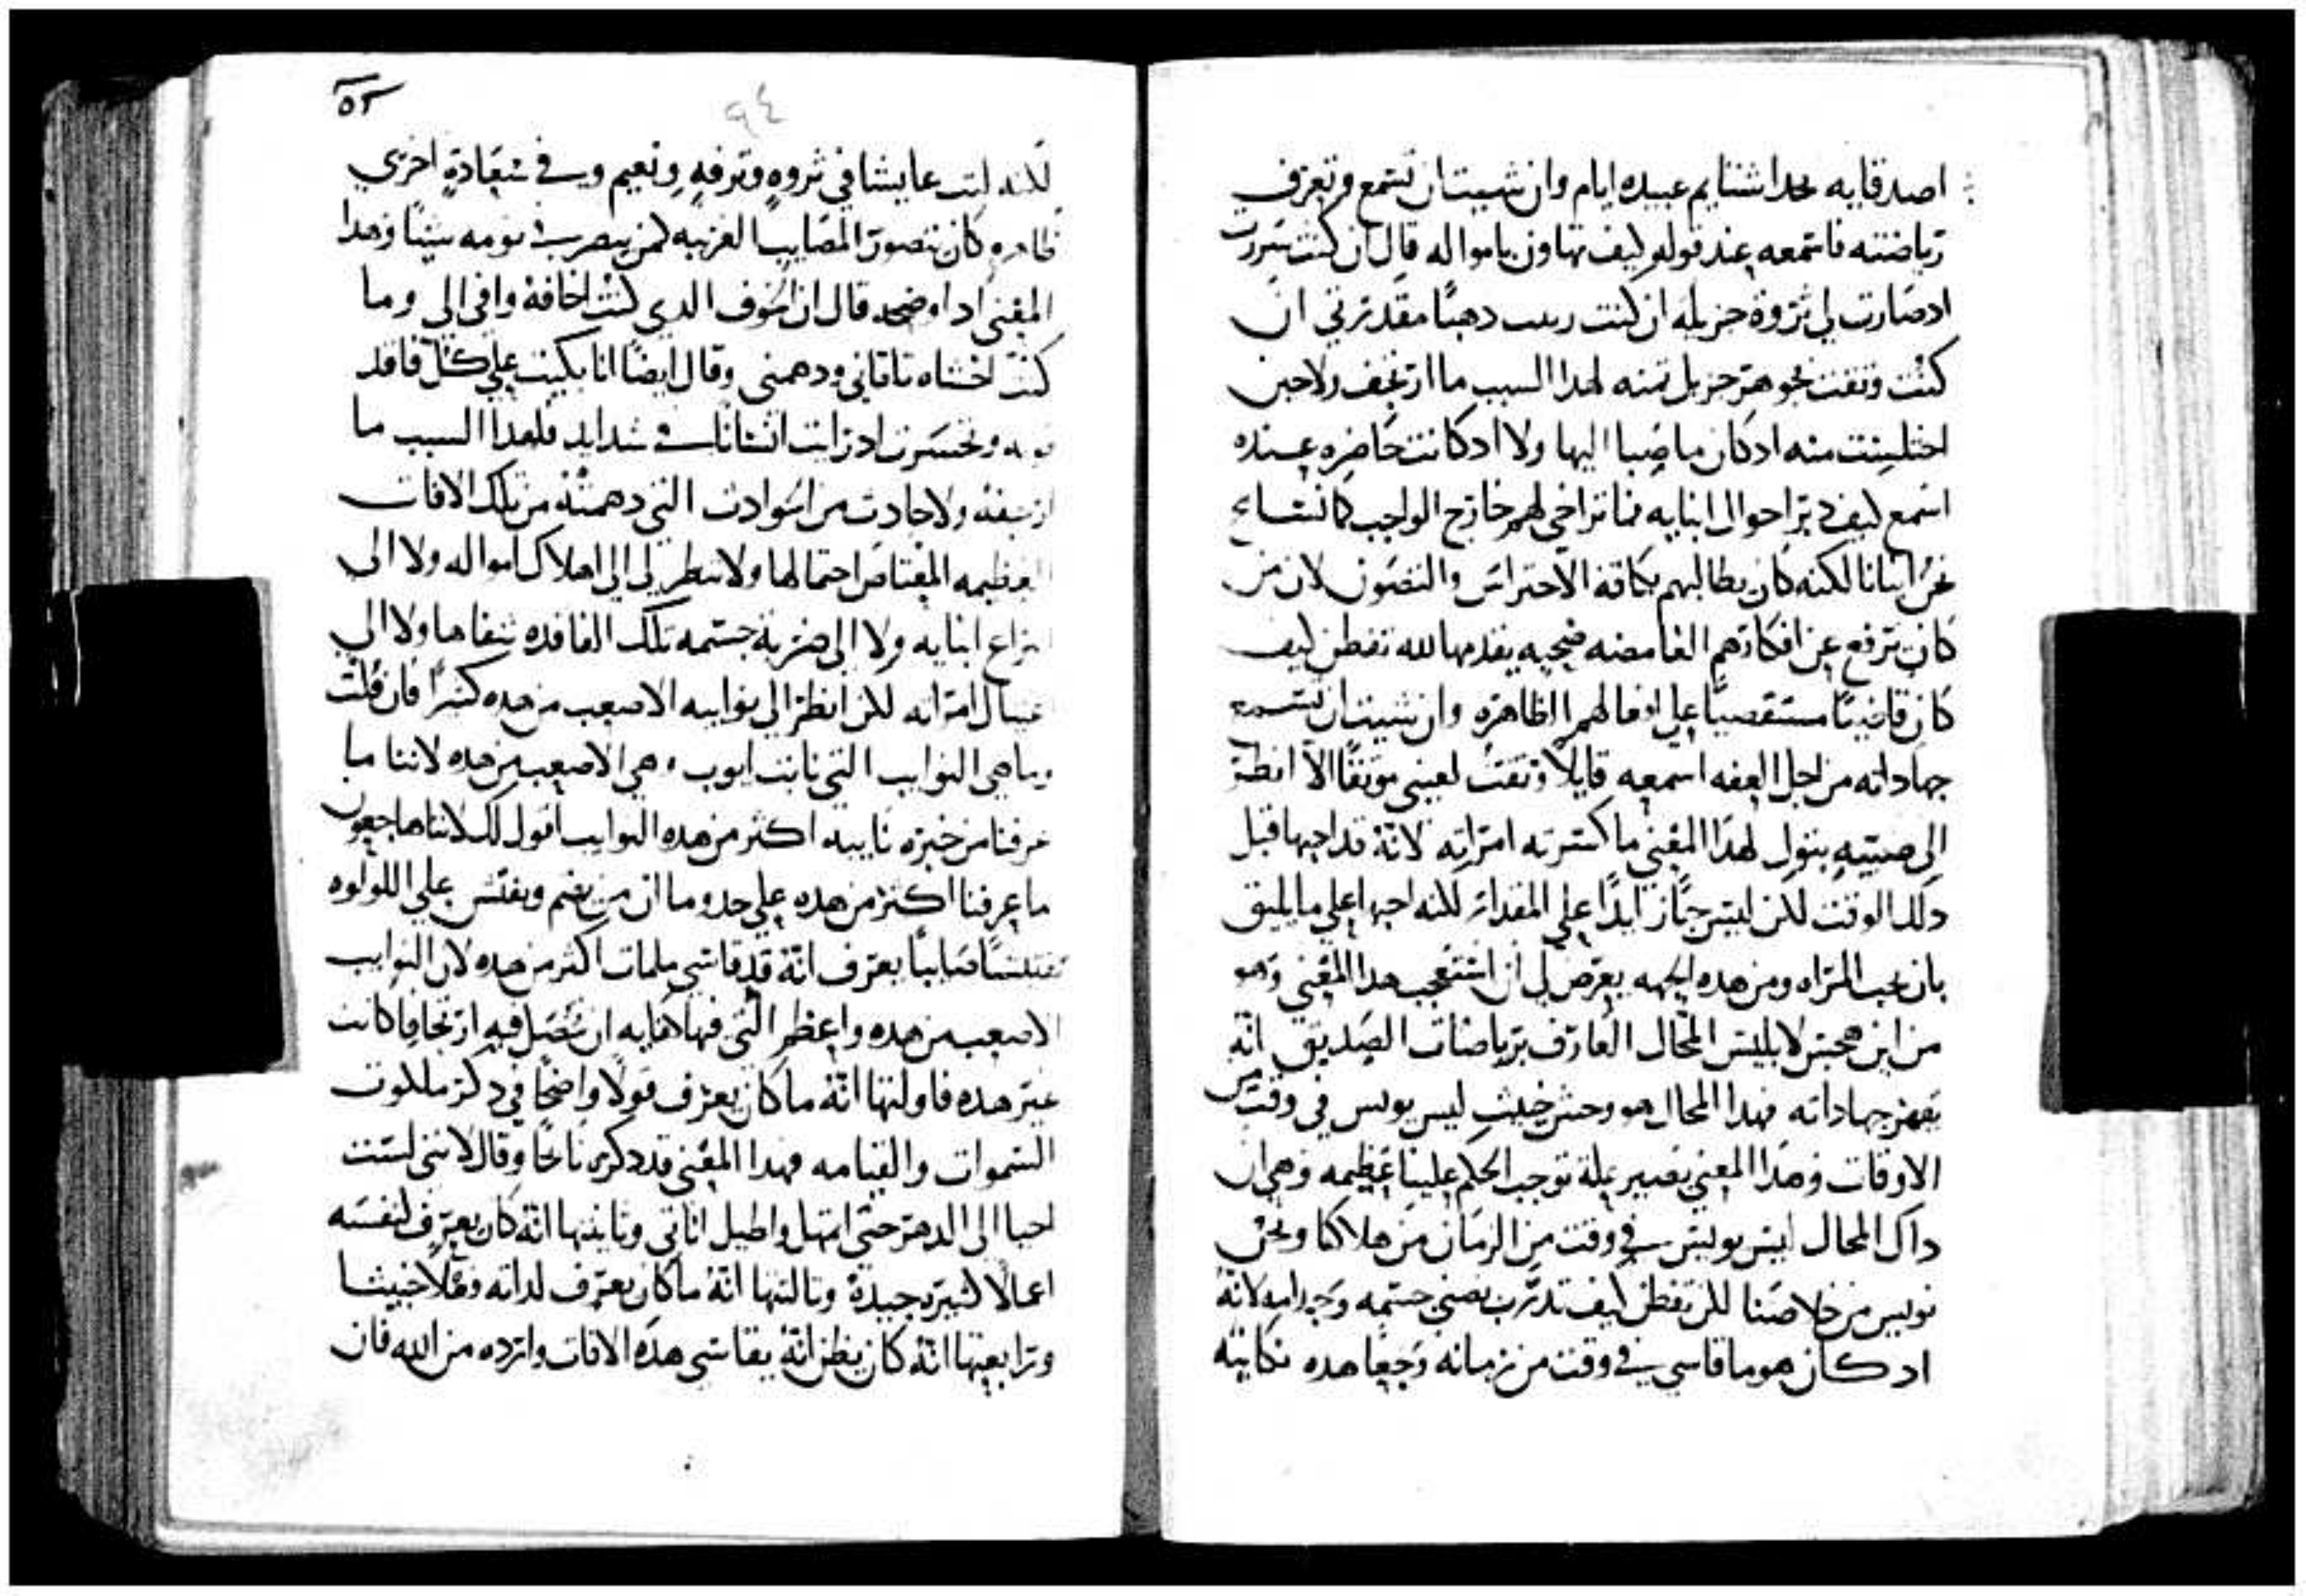 اصدقايه بحدا شتايم عبيده ايام وان شييت ان تسمع وتعرف
رياضته فاسمعه عند قوله كيف تهاون بامواله قال ان كنت سررت
اذ صارت لي ثروة جزيله ان كنت رتبت دهبًا مقدرتي ان
كنت وثقت بجوهر جزيل ثمنه لهدا السبب ما ارتجف ولا حين
اختلست منه اد كان ما صبا اليها ولا اد كانت حاضره عنده
اسمع كيف دبر احوال ابنايه فما تراخي لهم خارج الواجب كما نتساع
نحن ابنانا لكنه كان يطالبهم بكافة الاحتراس والتصون لان من
كان يرفع عن افكارهم الغامضه ضحيه يقدمها لله تفطن كيف
كان قاضيًا مستقصيًا علي افعالهم الظاهره وان شييت ان تسمع
جهاداته من اجل العفه اسمعه قايلًا وثقت لعيني موثقًا الا انظر
الي صبيه يتول لهدا المعني ما كسرته امراته لانه قد احبها قبل
دلك الوقت لكن ليس حبًا زايدًا علي المقدار لكنه احبها علي ما يليق
بان يحب المراه ومن هده الجهه يعرض لي ان استعجب هدا المعني وهو
من اين هجس لابليس المحال العارف برياضات الصديق انه
يقهر جهاداته فهدا المحال هو وحش خبيث ليس يويس في وقت من
الاوقات وهدا المعني يصير علة توجب الحكم علينا عظيمه وهي ان
داك المحال ليس يويس في وقت من الزمان من هلاكنا ونحن
نويس من خلاصنا لكن تفطن كيف تدرب بضني جسمه وجراحه لانه
اد كان هو ما قاسي في وقت من زمانه وجعًا هده نكايته
٥٢
٩٤
لكنه لبث عايشا في ثروه وترفه ونعيم وفي سعادة اخري
ظاهره كان يتصور المصايب الغريبه كمن يبصر في نومه شيًا وهدا
المعني اد اوضحه قال ان الخوف الدي كنت اخافه وافي الي وما
كنت اخشاه تلقاني ودهمني وقال ايضًا انا بكيت علي كل فاقد
قوته وتحسرت اد رايت انسانا في شدايد فلهدا السبب ما
ارجفه ولا حادث من الحوادث التي دهمته من تلك الافات
العظيمه المعتاص احتمالها ولا تنظر لي الي اهلاك امواله ولا الي
انتزاع ابنايه ولا الي ضربة جسمه تلك الفاقده شفاها ولا الي
اغتيال امراته لكن انظر الي نوايبه الاصعب من هده كثيرًا فان قلت
وما هي النوايب التي نابت ايوب وهي الاصعب من هده لاننا ما
عرفنا من خبره نايبه اكثر من هده النوايب اقول لك لاننا هاجعون
ما عرفنا اكثر من هده علي حدوما ان من يهتم ويفتش علي اللولوه
تفتيشًا صايبًا يعرف انه قد قاسي ملمات اكثر من هده لان النوايب
الاصعب من هده واعظم التي فيها كفايه ان تحصل فيه ارتجافا كانت
غير هده فاولتها انه ما كان يعرف قولًا واضحًا في دكر ملكوت
السموات والقيامه فهدا المعني قد دكره نايحًا وقال لانني لست
احيا الي الدهر حتي امهل واطيل اناتي وثانيتها انه كان يعرف لنفسه
اعمالًا كثيره جيدة وثالثتها انه ما كان يعرف لداته فعلًا خبيثا
ورابعتها انه كان يظن انه يقاسي هده الافات وارده من الله فان